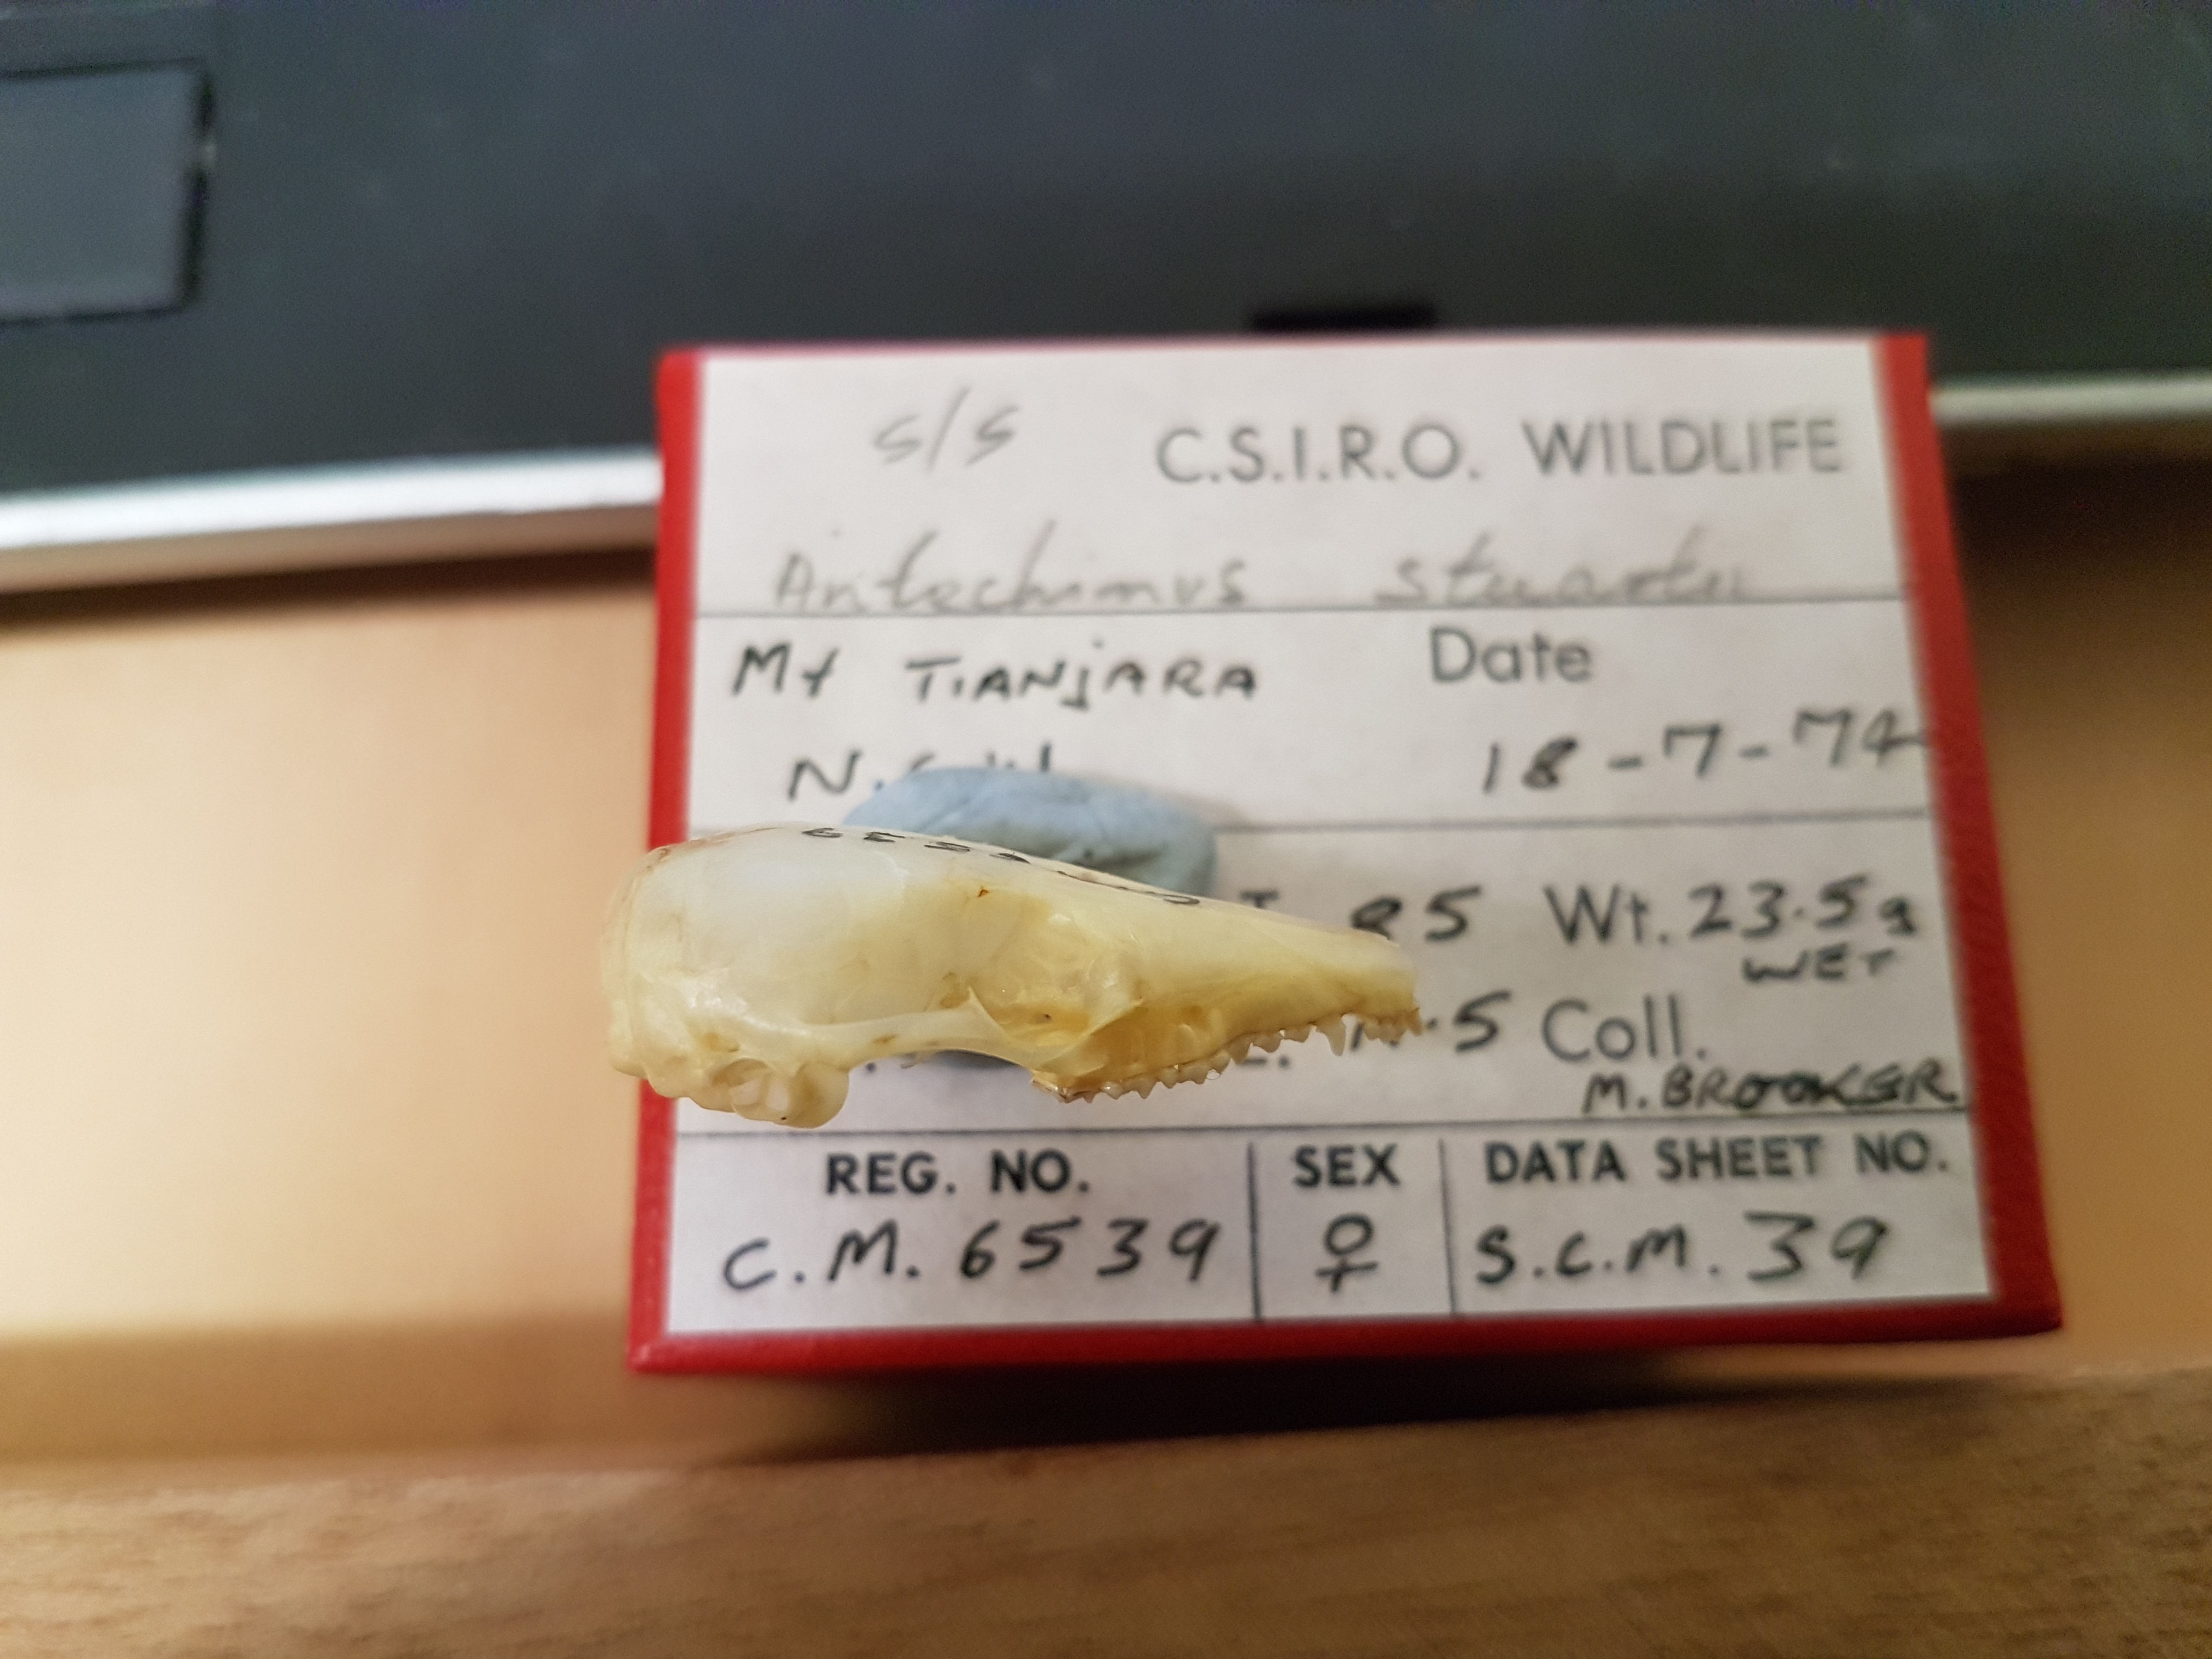 s/s C.S.I.R.O. WILDLIFE
Antechinus stuartii
Mt TIANJARA Date
N.S.W. 18-7-74
85 Wt. 23.5g
WET
.5 Coll.
M. BROOKER
REG. NO. SEX DATA SHEET NO.
C.M. 6539 ♀ S.C.M. 39